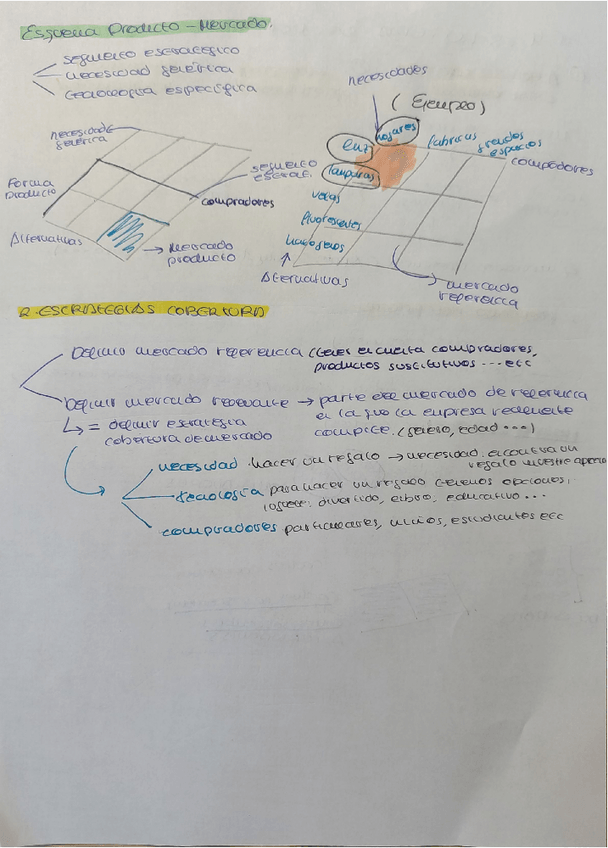 Esquema Producto - Mercado.
segmento estratégico
necesidad genérica
tecnología específica
necesidades
(Ejemplo)
necesidad genérica
luz
hogares
fabricas
grandes espacios
compradores
lamparas
velas
fluorescentes
halogenos
Alternativas
mercado referencia
Forma producto
segmento estrat.
compradores
Alternativas
Mercado producto
2. ESTRATEGIAS COBERTURA
Definir mercado referencia (tener en cuenta compradores,
productos sustitutivos ... etc
Definir mercado relevante → parte del mercado de referencia
en la que la empresa realmente
compite. (género, edad ...)
= definir estrategia
cobertura de mercado
necesidad. hacer un regalo → necesidad.
regalo muestre aprecio
tecnología para hacer un regalo tenemos opciones,
juguete. divertido, libro, educativo ...
compradores particulares, niños, estudiantes etc